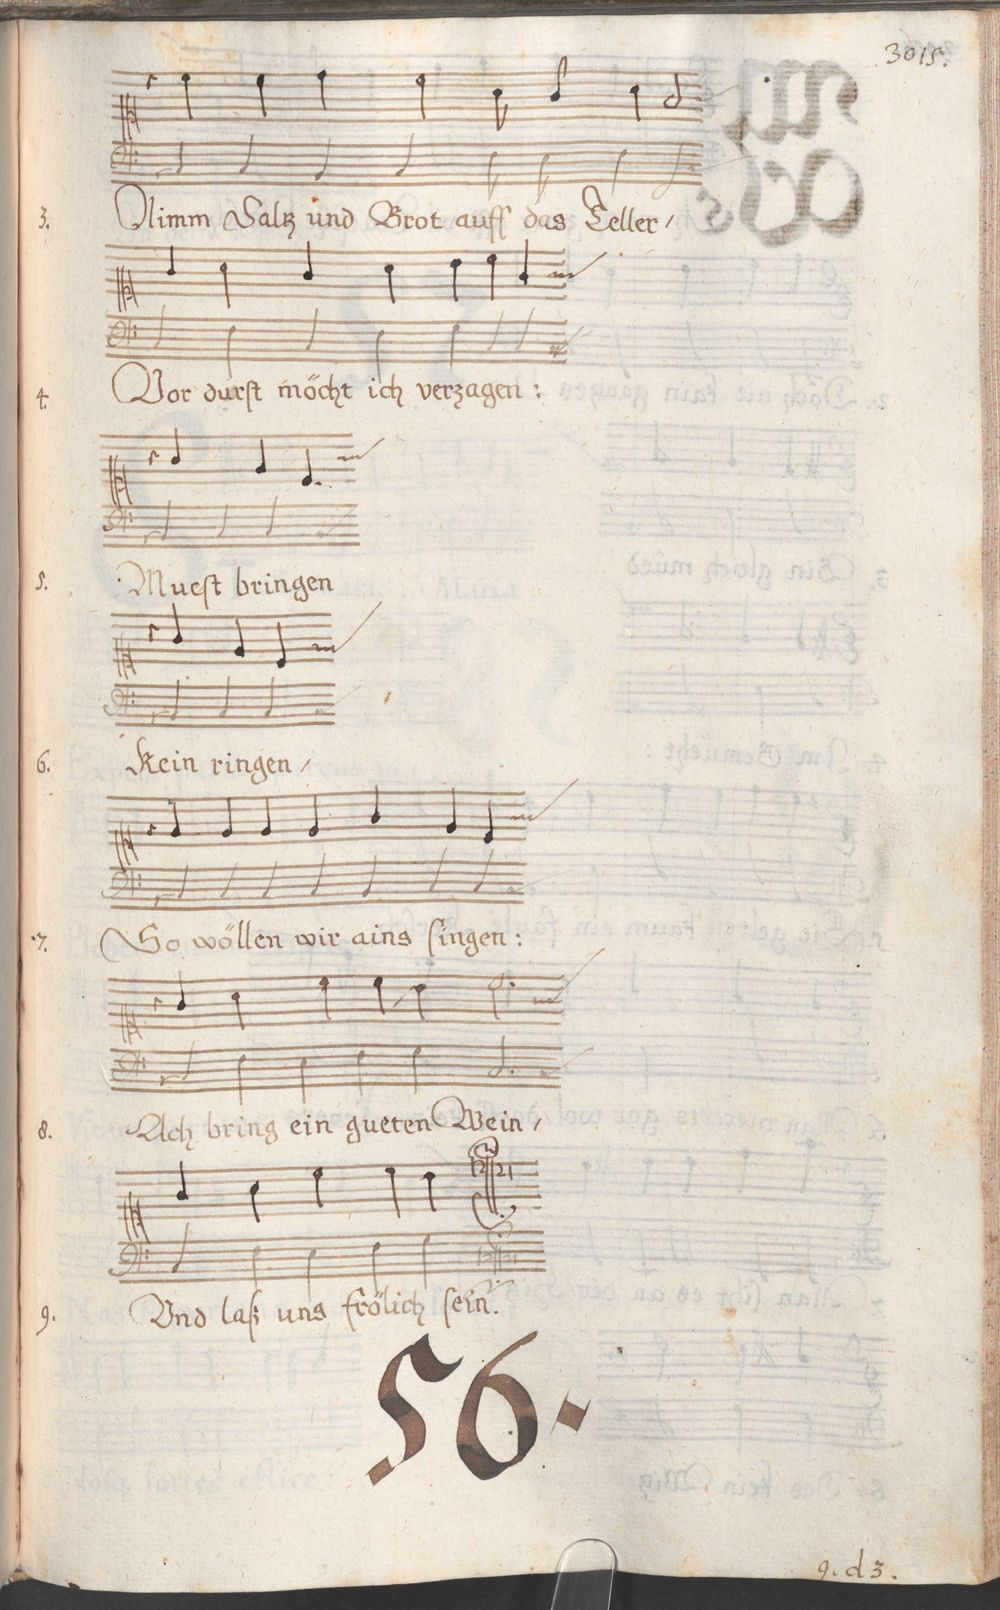 3015.
3. Nimm Saltz und Brot auff das Teller /
4. Vor durst möcht ich verzagen :
5. Muest bringen
6. Kein ringen /
7. So wöllen wir ains singen :
8. Ach bring ein gueten Wein /
9. Vnd laß uns frölich sein.
56.
9. d 3.